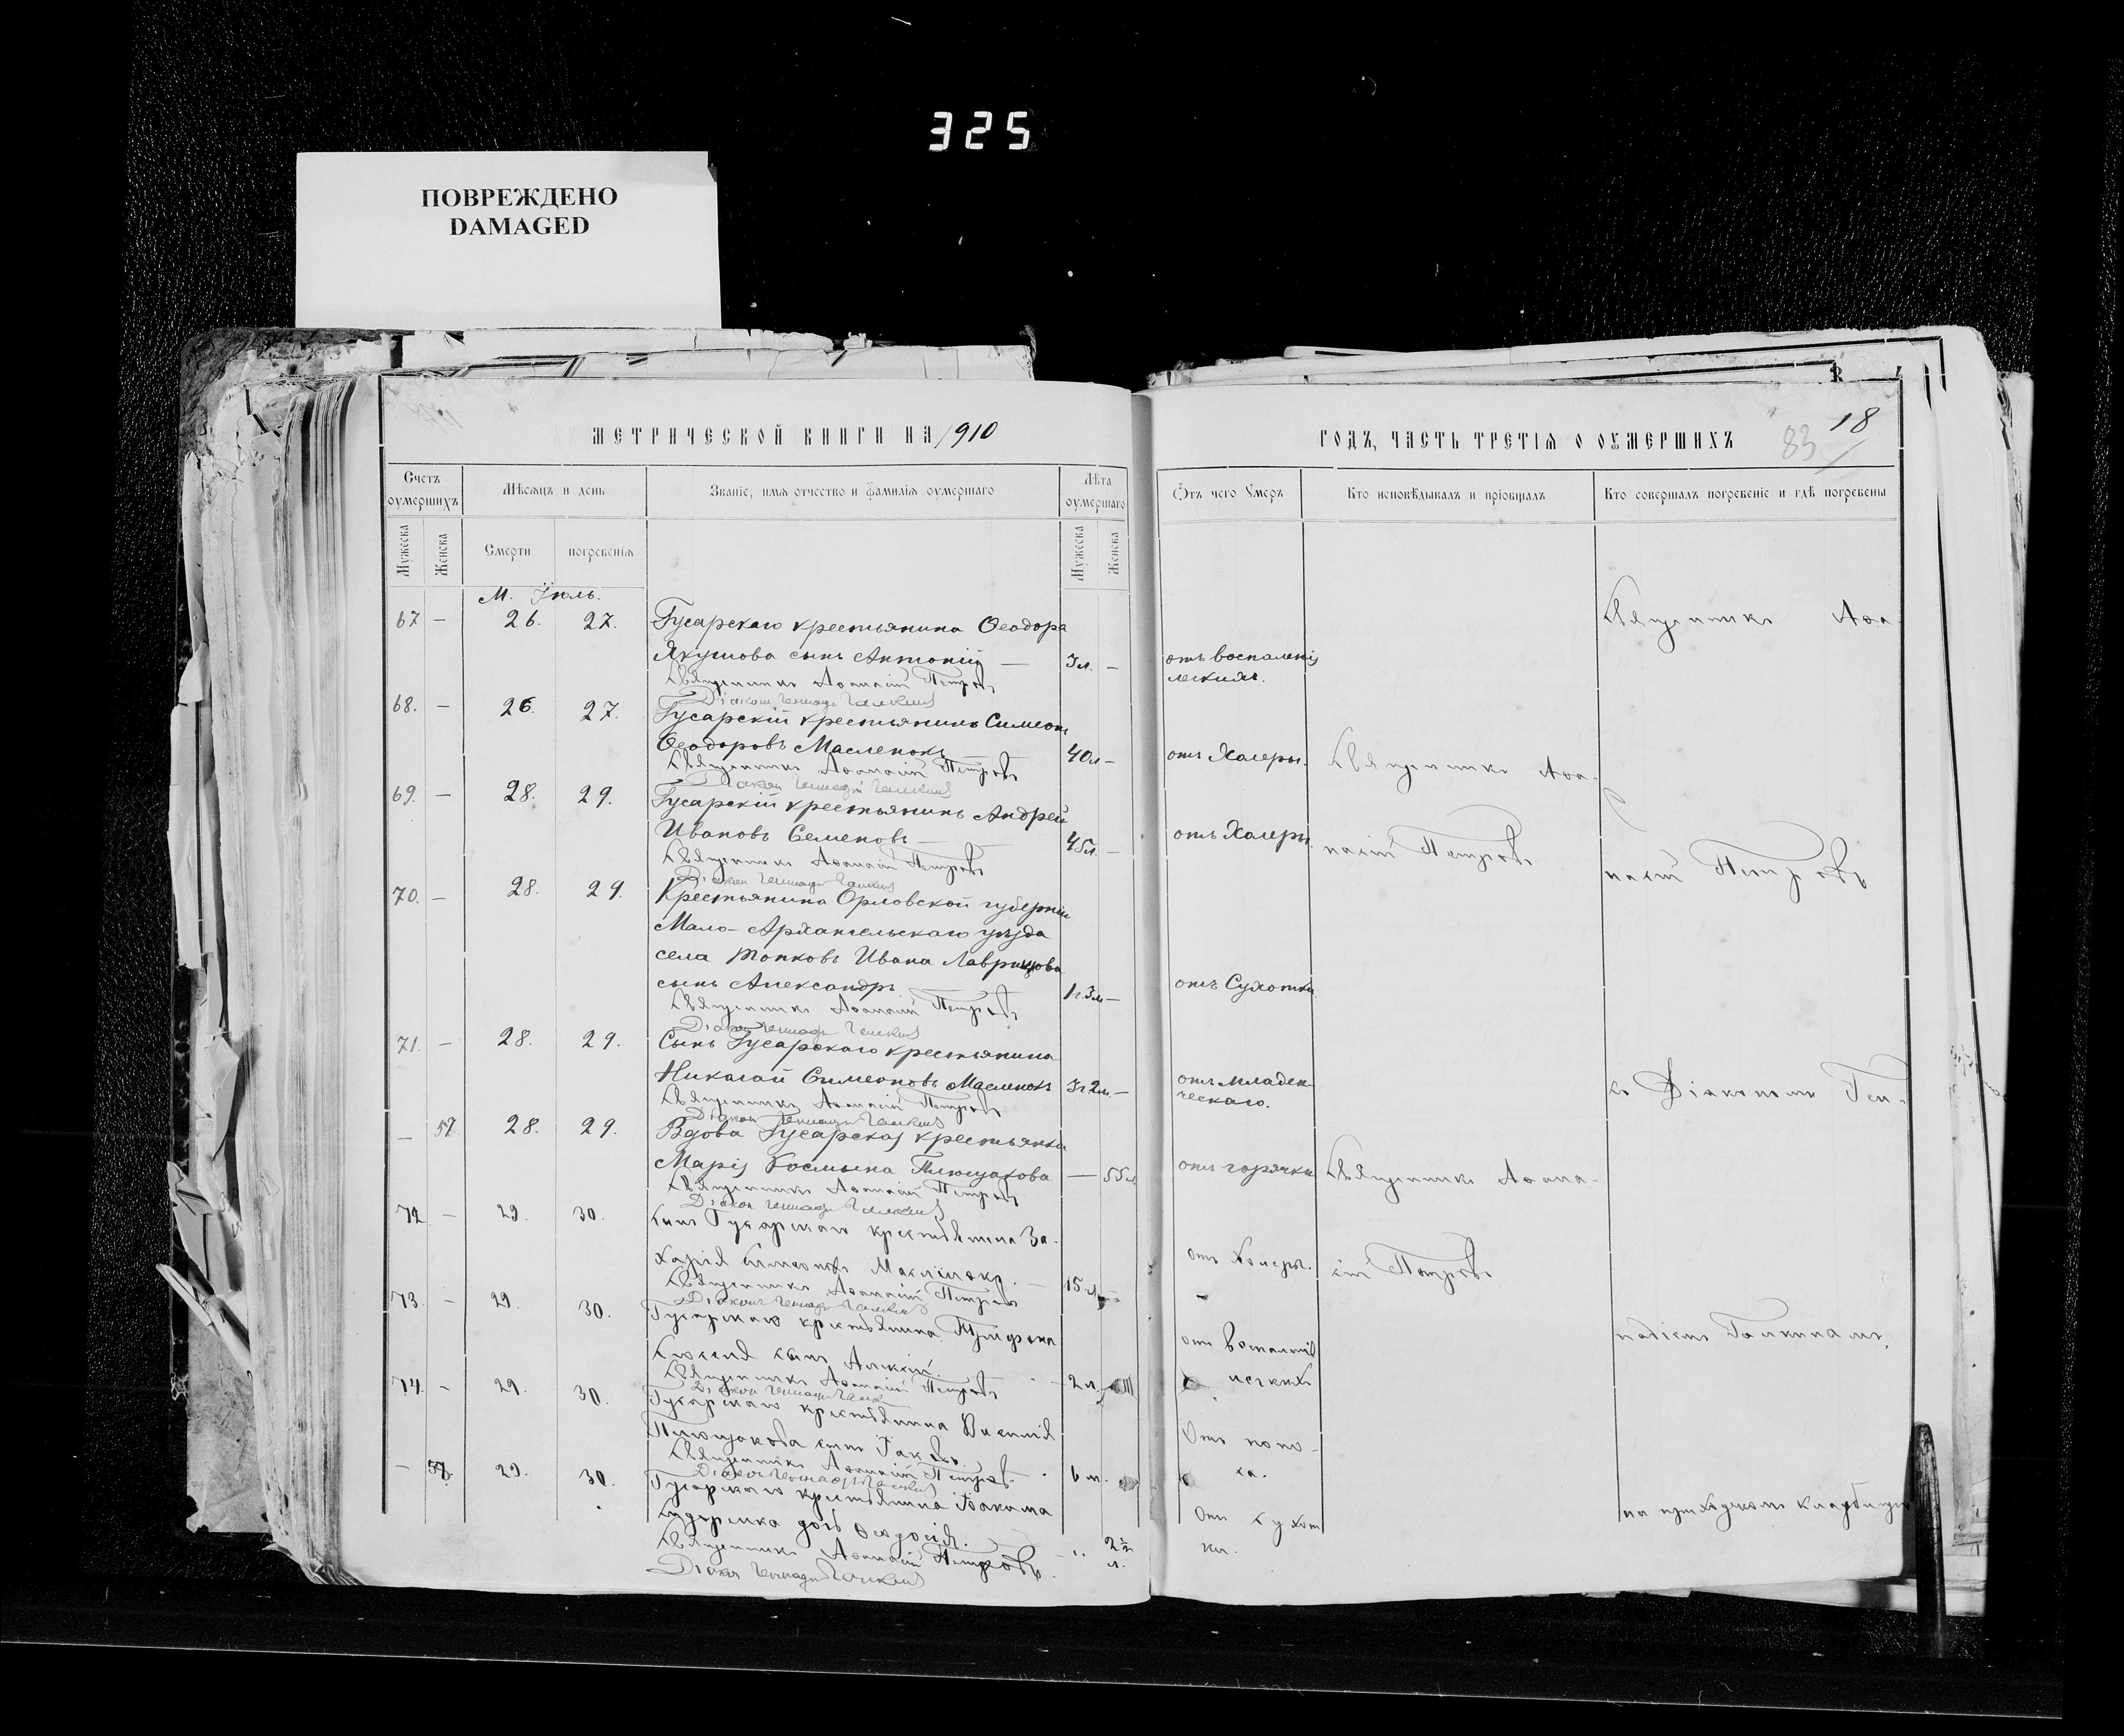 325
ПОВРЕЖДЕНО
DAMAGED
МЕТРИЧЕСКОЙ КНИГИ НА 1910
ГОДЪ, ЧАСТЬ ТРЕТІЯ О ОУМЕРШИХЪ
18
83
Счетъ оумершихъ
Мѣсяцъ и день
Званіе, имя отчество и фамилія оумершаго
Лѣта оумершаго
Отъ чего оумеръ
Кто исповѣдывалъ и пріобщалъ
Кто совершалъ погребеніе и гдѣ погребены
Мужеска
Женска
Смерти
погребенія
Мужеска
Женска
М. Іюль.
67 — 26. 27. Гусарскаго крестьянина Ѳеодора
Якушова сынъ Антоній — 3 л. — отъ воспаленія
легкихъ.
Священникъ Аѳанасій Петровъ
Діаконъ Геннадій Галкинъ
68. — 26. 27. Гусарскій крестьянинъ Симеонъ
Ѳеодоровъ Масленокъ — 40 л — отъ Халеры.
Священникъ Аѳанасій Петровъ
Діаконъ Геннадій Галкинъ
69. — 28. 29. Гусарскій крестьянинъ Андрей
Ивановъ Семеновъ — 45 л. — отъ Халеры.
Священникъ Аѳанасій Петровъ
Діаконъ Геннадій Галкинъ
70. — 28. 29. Крестьянина Орловской губерніи
Мало-Архангельскаго уѣзда
села Топковъ Ивана Лаврищова
сынъ Александръ 1 г. 3 м — отъ Сухотки
Священникъ Аѳанасій Петровъ
Діаконъ Геннадій Галкинъ
71. — 28. 29. Сынъ Гусарскаго крестьянина
Николай Симеоновъ Масленокъ 3 г 2 м. — отъ младен-
ческаго.
Священникъ Аѳанасій Петровъ
Діаконъ Геннадій Галкинъ
— 57 28. 29. Вдова Гусарская крестьянка
Марія Космына Плющакова — 55 л отъ горячки
Священникъ Аѳанасій Петровъ
Діаконъ Геннадій Галкинъ
72 — 29. 30. Сынъ Гусарскаго крестьянина За-
харія Симеоновъ Масленокъ. — 15 л. отъ Холеры.
Священникъ Аѳанасій Петровъ
Діаконъ Геннадій Галкинъ
73. — 29. 30. Гусарскаго крестьянина Трифона
сынъ Алексій. — 2 л. отъ воспаленія
легкихъ
Священникъ Аѳанасій Петровъ
Діаконъ Геннадій Галкинъ
74. — 29. 30. Гусарскаго крестьянина Василія
Плющакова сынъ Іаковъ. 6 м. Отъ поно-
са.
Священникъ Аѳанасій Петровъ
Діаконъ Геннадій Галкинъ
— 58. 29. 30. Гусарскаго крестьянина
дочь Ѳеодосія. 2½ л. Отъ сухот
ки.
Священникъ Аѳанасій Петровъ.
Діаконъ Геннадій Галкинъ
Священникъ Аѳа-
насій Петровъ
Священникъ Аѳана-
сій Петровъ
Священникъ Аѳа-
насій Петровъ
съ Діакономъ Ген-
надіемъ Галкинымъ,
на приходскомъ кладбищѣ